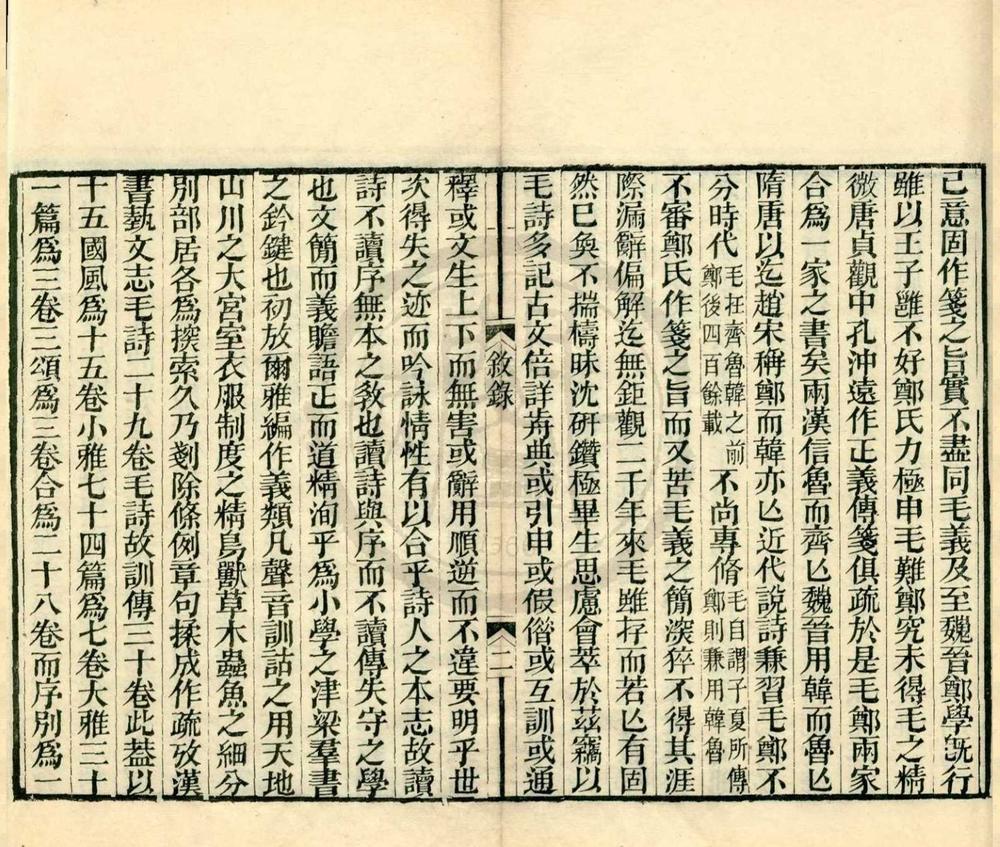 己意固作箋之旨實不盡同毛義及至魏晉鄭學旣行
雖以王子雝不好鄭氏力極申毛難鄭究未得毛之精
微唐貞觀中孔沖遠作正義傳箋俱疏於是毛鄭兩家
合爲一家之書矣兩漢信魯而齊亾魏晉用韓而魯亾
隋唐以迄趙宋稱鄭而韓亦亾近代說詩兼習毛鄭不
分時代
毛在齊魯韓之前
鄭後四百餘載
不尚專脩
毛自謂子夏所傳
鄭則兼用韓魯
不審鄭氏作箋之旨而又苦毛義之簡深猝不得其涯
際漏辭偏解迄無鉅觀二千年來毛雖存而若亾有固
然已奐不揣檮昧沈研鑽極畢生思慮會萃於茲竊以
毛詩多記古文倍詳歬典或引申或假借或互訓或通
敘錄
二
釋或文生上下而無害或辭用順逆而不違要明乎世
次得失之迹而吟詠情性有以合乎詩人之本志故讀
詩不讀序無本之敎也讀詩與序而不讀傳失守之學
也文簡而義贍語正而道精洵乎爲小學之津梁羣書
之鈐鍵也初放爾雅編作義類凡聲音訓詁之用天地
山川之大宮室衣服制度之精鳥獸草木蟲魚之細分
別部居各爲探索久乃剗除條例章句揉成作疏攷漢
書藝文志毛詩二十九卷毛詩故訓傳三十卷此蓋以
十五國風爲十五卷小雅七十四篇爲七卷大雅三十
一篇爲三卷三頌爲三卷合爲二十八卷而序別爲一